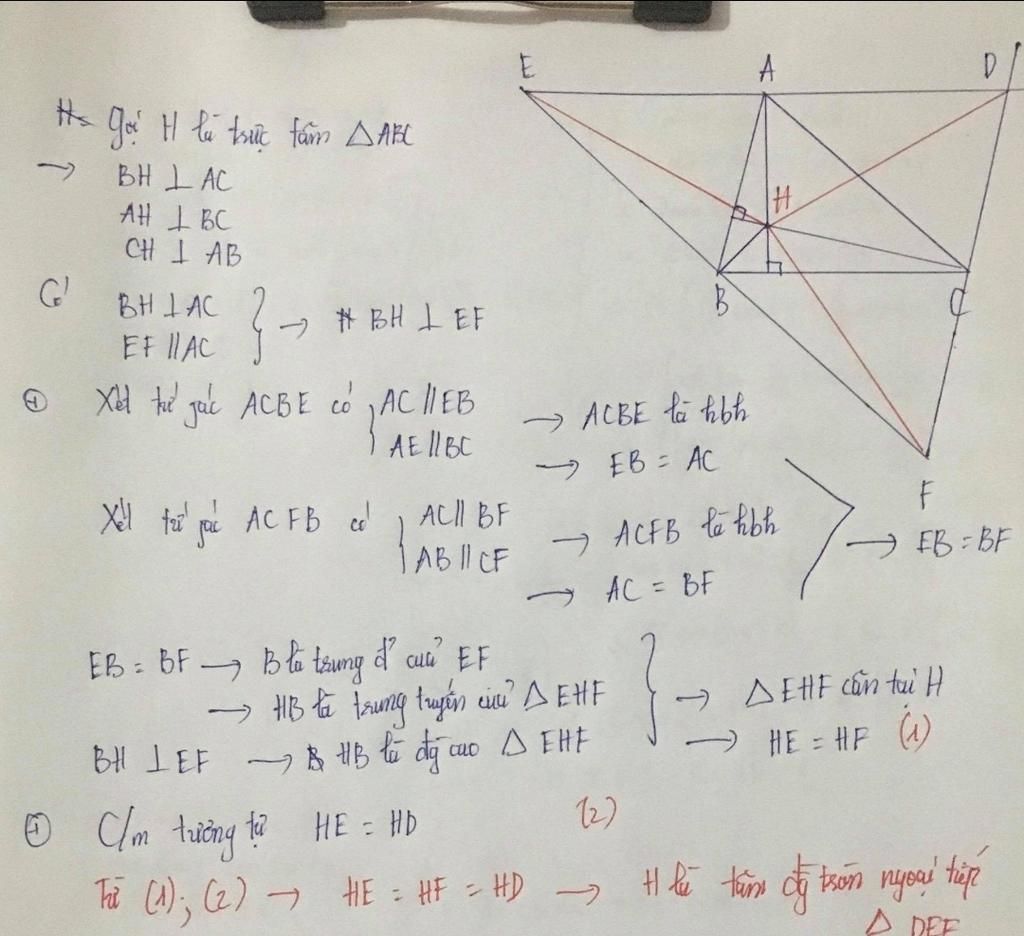 E A D
Gọi H là trực tâm △ABC
→ BH ⊥ AC
AH ⊥ BC
CH ⊥ AB
H
B C
F
Có BH ⊥ AC
EF // AC } → BH ⊥ EF
+ Xét tứ giác ACBE có { AC // EB → ACBE là hbh
AE // BC → EB = AC
Xét tứ giác ACFB có { AC // BF → ACFB là hbh
AB // CF → AC = BF
→ EB = BF
EB = BF → B là trung đ' của EF
→ HB là trung tuyến của △EHF } → △EHF cân tại H
BH ⊥ EF → HB là đg cao △EHF → HE = HF (1)
+ C/m tương tự HE = HD (2)
Từ (1); (2) → HE = HF = HD → H là tâm đg tròn ngoại tiếp
△ DEF